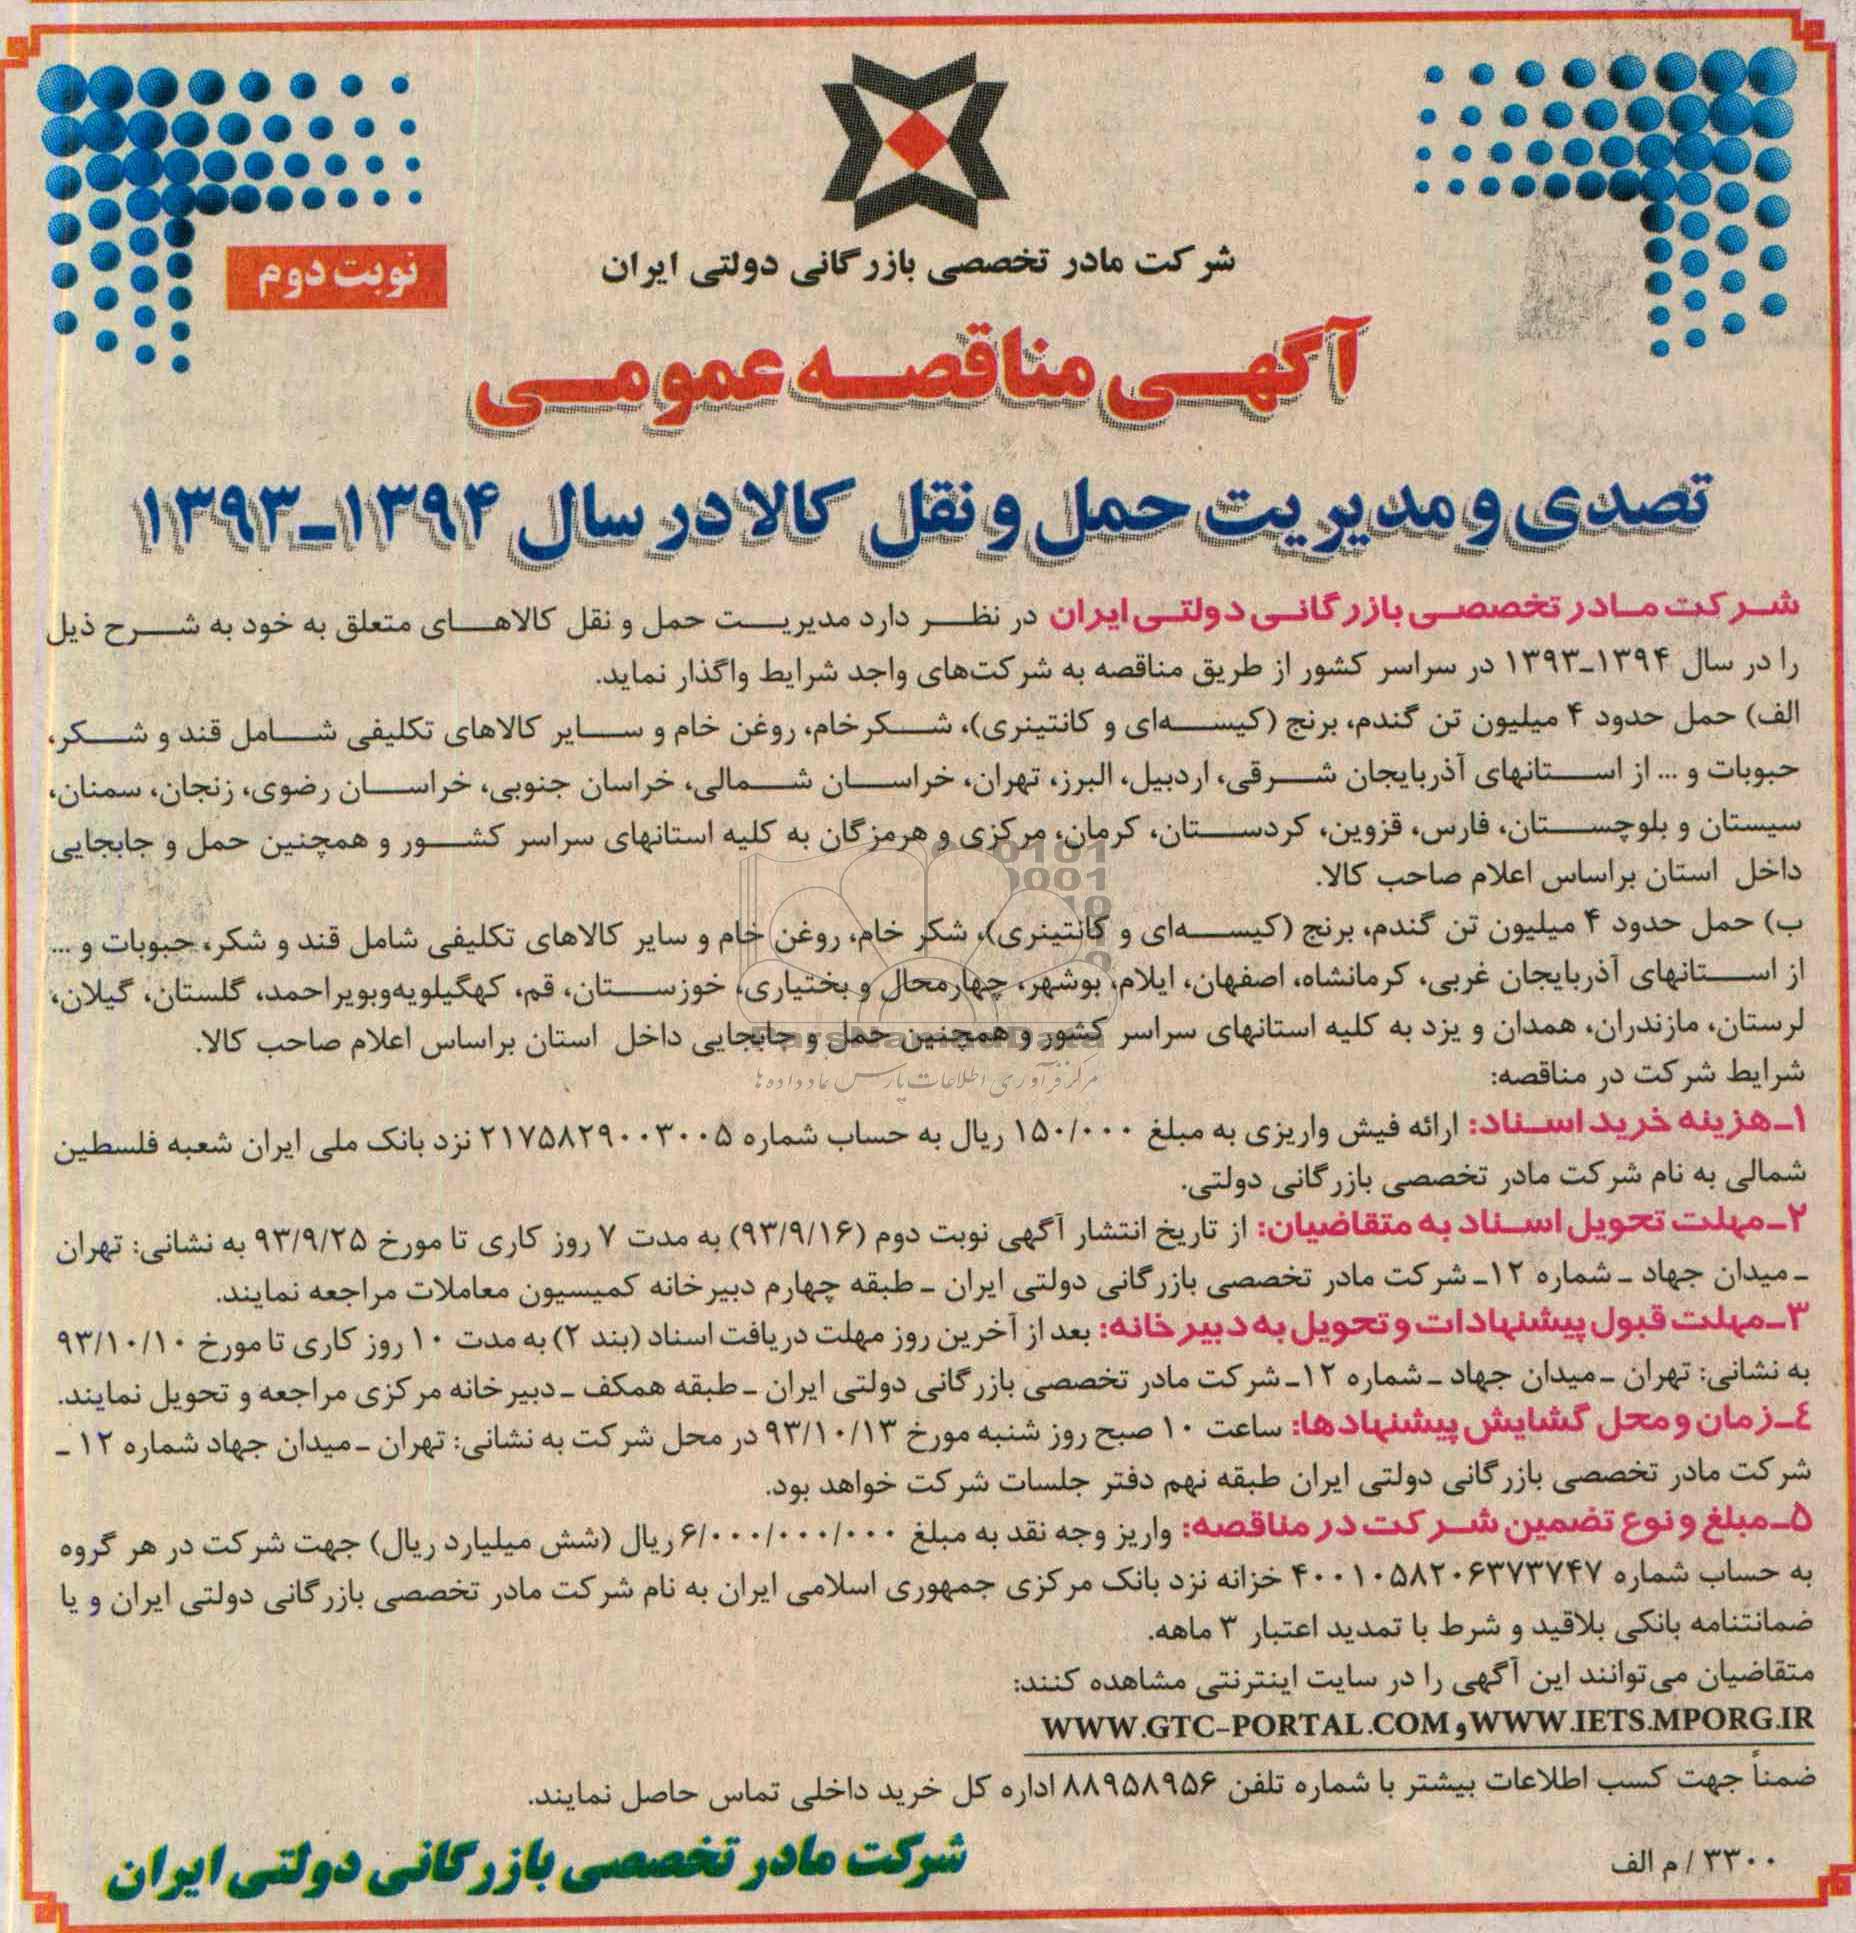 شرکت مادر تخصصی بازرگانی دولتی ایران
نوبت دوم
آگهی مناقصه عمومی
تصدی و مدیریت حمل و نقل کالا در سال ۱۳۹۴-۱۳۹۳
شرکت مادر تخصصی بازرگانی دولتی ایران در نظر دارد مدیریت حمل و نقل کالاهای متعلق به خود به شرح ذیل
را در سال ۱۳۹۴-۱۳۹۳ در سراسر کشور از طریق مناقصه به شرکت‌های واجد شرایط واگذار نماید.
الف) حمل حدود ۴ میلیون تن گندم، برنج (کیسه‌ای و کانتینری)، شکرخام، روغن خام و سایر کالاهای تکلیفی شامل قند و شکر،
حبوبات و ... از استانهای آذربایجان شرقی، اردبیل، البرز، تهران، خراسان شمالی، خراسان جنوبی، خراسان رضوی، زنجان، سمنان،
سیستان و بلوچستان، فارس، قزوین، کردستان، کرمان، مرکزی و هرمزگان به کلیه استانهای سراسر کشور و همچنین حمل و جابجایی
داخل استان براساس اعلام صاحب کالا.
ب) حمل حدود ۴ میلیون تن گندم، برنج (کیسه‌ای و کانتینری)، شکر خام، روغن خام و سایر کالاهای تکلیفی شامل قند و شکر، حبوبات و ...
از استانهای آذربایجان غربی، کرمانشاه، اصفهان، ایلام، بوشهر، چهارمحال و بختیاری، خوزستان، قم، کهگیلویه‌وبویراحمد، گلستان، گیلان،
لرستان، مازندران، همدان و یزد به کلیه استانهای سراسر کشور و همچنین حمل و جابجایی داخل استان براساس اعلام صاحب کالا.
مرکز فرآوری اطلاعات پارس نماد داده ها
شرایط شرکت در مناقصه:
۱-هزینه خرید اسناد: ارائه فیش واریزی به مبلغ ۱۵۰/۰۰۰ ریال به حساب شماره ۲۱۷۵۸۲۹۰۰۳۰۰۵ نزد بانک ملی ایران شعبه فلسطین
شمالی به نام شرکت مادر تخصصی بازرگانی دولتی.
۲-مهلت تحویل اسناد به متقاضیان: از تاریخ انتشار آگهی نوبت دوم (۹۳/۹/۱۶) به مدت ۷ روز کاری تا مورخ ۹۳/۹/۲۵ به نشانی: تهران
- میدان جهاد - شماره ۱۲- شرکت مادر تخصصی بازرگانی دولتی ایران - طبقه چهارم دبیرخانه کمیسیون معاملات مراجعه نمایند.
۳-مهلت قبول پیشنهادات و تحویل به دبیرخانه: بعد از آخرین روز مهلت دریافت اسناد (بند ۲) به مدت ۱۰ روز کاری تا مورخ ۹۳/۱۰/۱۰
به نشانی: تهران - میدان جهاد - شماره ۱۲- شرکت مادر تخصصی بازرگانی دولتی ایران - طبقه همکف - دبیرخانه مرکزی مراجعه و تحویل نمایند.
۴-زمان و محل گشایش پیشنهادها: ساعت ۱۰ صبح روز شنبه مورخ ۹۳/۱۰/۱۳ در محل شرکت به نشانی: تهران - میدان جهاد شماره ۱۲ -
شرکت مادر تخصصی بازرگانی دولتی ایران طبقه نهم دفتر جلسات شرکت خواهد بود.
۵-مبلغ و نوع تضمین شرکت در مناقصه: واریز وجه نقد به مبلغ ۶/۰۰۰/۰۰۰/۰۰۰ ریال (شش میلیارد ریال) جهت شرکت در هر گروه
به حساب شماره ۴۰۰۱۰۵۸۲۰۶۳۷۳۷۴۷ خزانه نزد بانک مرکزی جمهوری اسلامی ایران به نام شرکت مادر تخصصی بازرگانی دولتی ایران و یا
ضمانتنامه بانکی بلاقید و شرط با تمدید اعتبار ۳ ماهه.
متقاضیان می‌توانند این آگهی را در سایت اینترنتی مشاهده کنند:
WWW.IETS.MPORG.IR و WWW.GTC-PORTAL.COM
ضمناً جهت کسب اطلاعات بیشتر با شماره تلفن ۸۸۹۵۸۹۵۶ اداره کل خرید داخلی تماس حاصل نمایند.
۳۳۰۰ / م الف
شرکت مادر تخصصی بازرگانی دولتی ایران